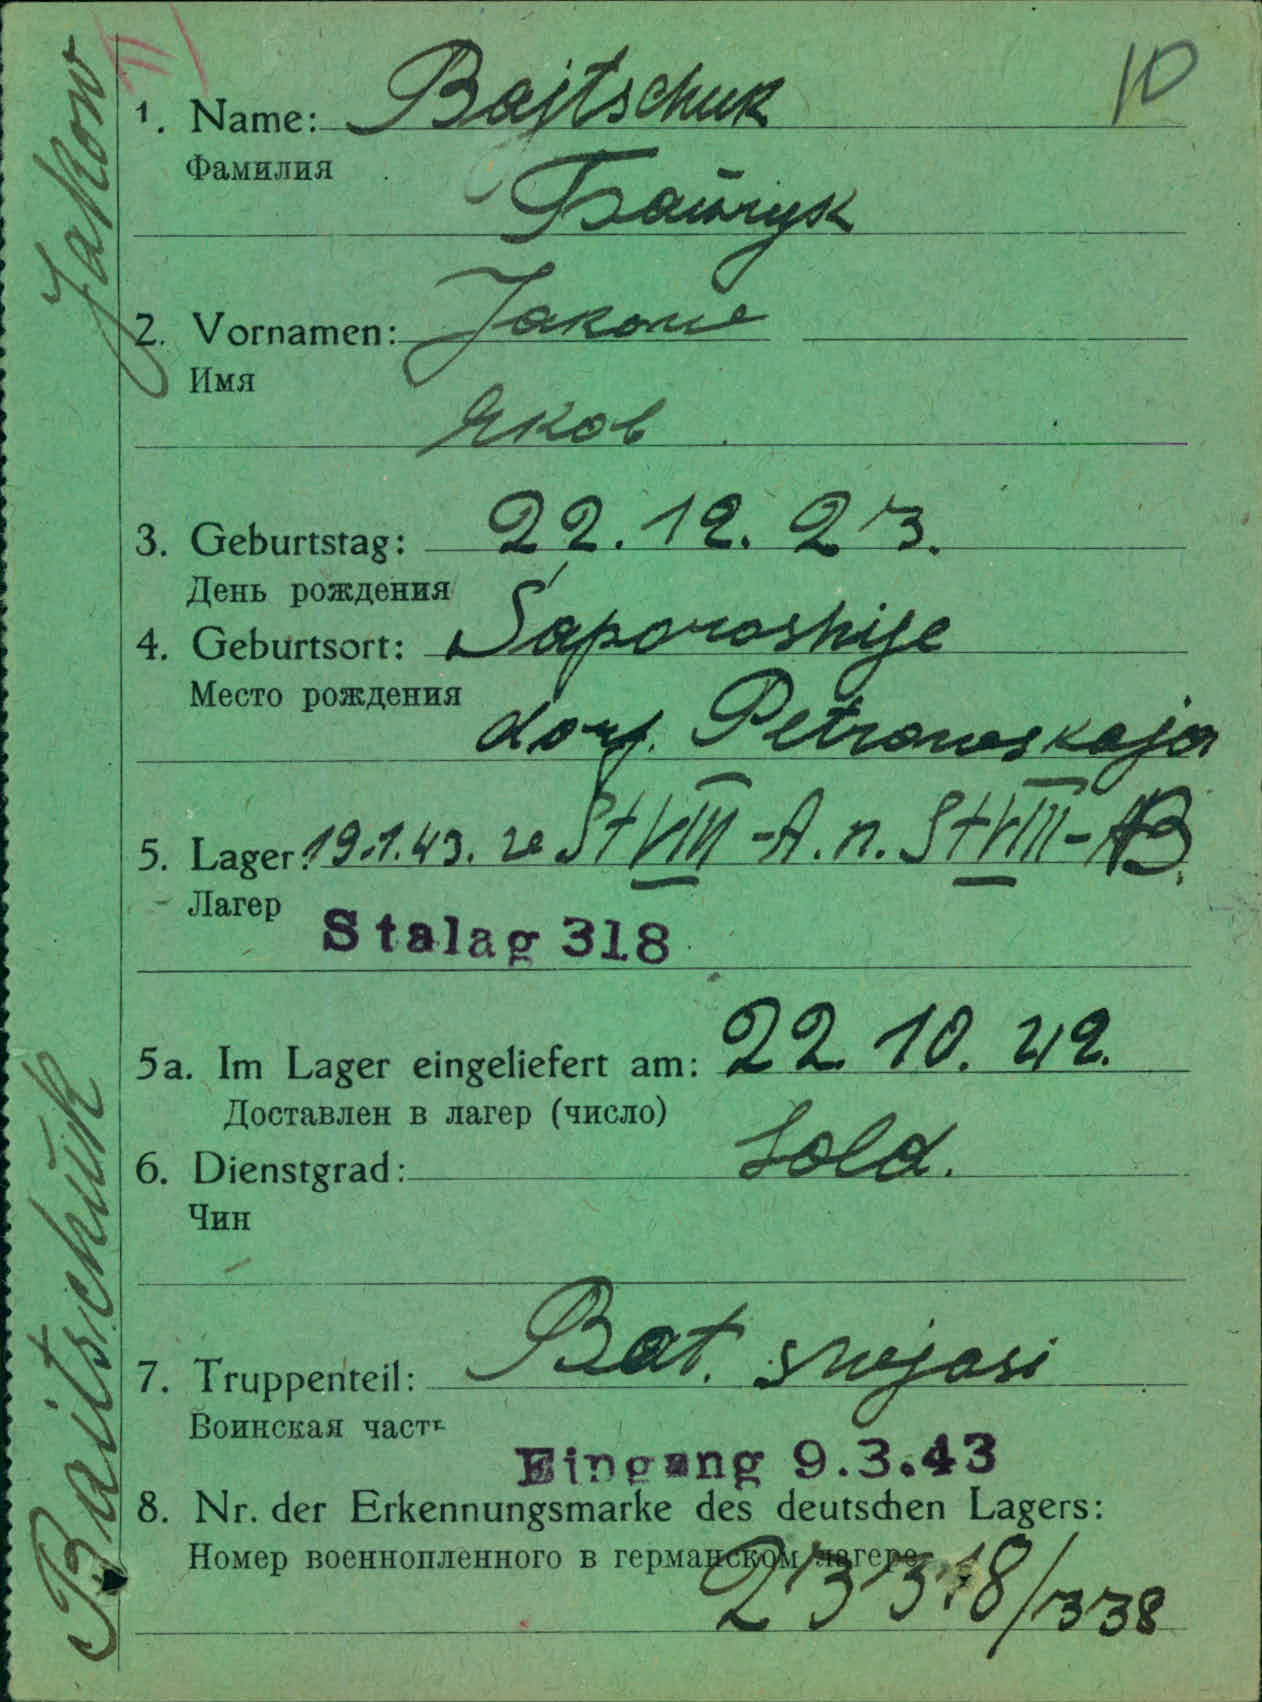 10
1. Name: Bajtschuk
Фамилия
Байчук
2. Vornamen: Jakowe
Имя
Яков
3. Geburtstag: 22.12.23.
День рождения
4. Geburtsort: Saporoshije
Место рождения
dorf. Petrowskaja
5. Lager: 19.1.43. St VIII-A. n. St VIII-B
Лагер
Stalag 318
5a. Im Lager eingeliefert am: 22.10.42.
Доставлен в лагер (число)
6. Dienstgrad: Sold.
Чин
7. Truppenteil: Bat. swjasi
Воинская часть
Eingang 9.3.43
8. Nr. der Erkennungsmarke des deutschen Lagers:
Номер военнопленного в германском лагере
Baitschuk Jakow